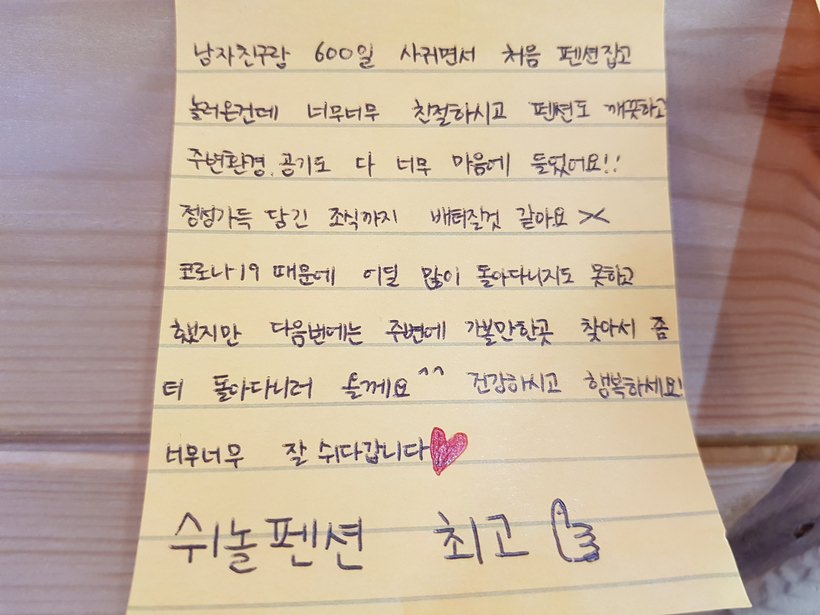 남자친구랑 600일 사귀면서 처음 펜션잡고
놀러온건데 너무너무 친절하시고 펜션도 깨끗하고
주변환경, 공기도 다 너무 마음에 들었어요!!
정성가득 담긴 조식까지 배터질것 같아요 ><
코로나19 때문에 어딜 많이 돌아다니지도 못하고
했지만 다음번에는 주변에 가볼만한곳 찾아서 좀
더 돌아다니러 올게요^^ 건강하시고 행복하세요!
너무너무 잘 쉬다갑니다♥
쉬놀펜션 최고